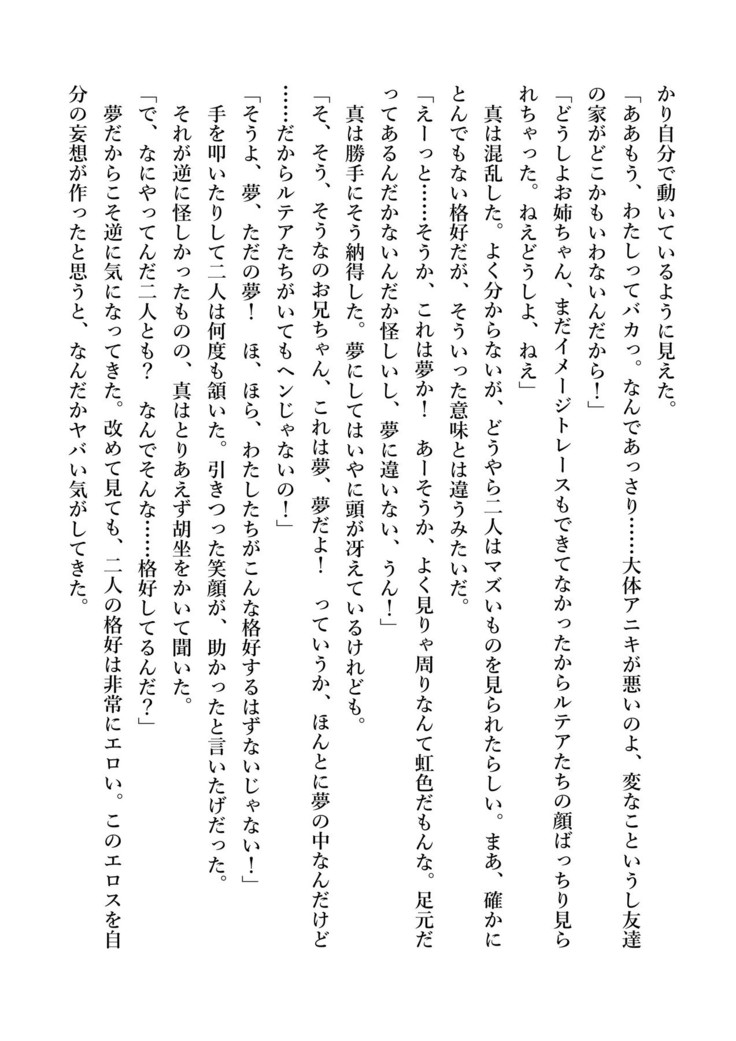 かり自分で動いているように見えた。
「ああもう、わたしってバカっ。なんであっさり……大体アニキが悪いのよ、変なこというし友達
の家がどこかもいわないんだから！」
「どうしよお姉ちゃん、まだイメージトレースもできてなかったからルテアたちの顔ばっちり見ら
れちゃった。ねえどうしよ、ねえ」
真は混乱した。よく分からないが、どうやら二人はマズいものを見られたらしい。まあ、確かに
とんでもない格好だが、そういった意味とは違うみたいだ。
「えーっと……そうか、これは夢か！　あーそうか、よく見りゃ周りなんて虹色だもんな。足元だ
ってあるんだかないんだか怪しいし、夢に違いない、うん！」
真は勝手にそう納得した。夢にしてはいやに頭が冴えているけれども。
「そ、そう、そうなのお兄ちゃん、これは夢、夢だよ！　っていうか、ほんとに夢の中なんだけど
……だからルテアたちがいてもヘンじゃないの！」
「そうよ、夢、ただの夢！　ほ、ほら、わたしたちがこんな格好するはずないじゃない！」
手を叩いたりして二人は何度も頷いた。引きつった笑顔が、助かったと言いたげだった。
それが逆に怪しかったものの、真はとりあえず胡坐をかいて聞いた。
「で、なにやってんだ二人とも？　なんでそんな……格好してるんだ？」
夢だからこそ逆に気になってきた。改めて見ても、二人の格好は非常にエロい。このエロスを自
分の妄想が作ったと思うと、なんだかヤバい気がしてきた。